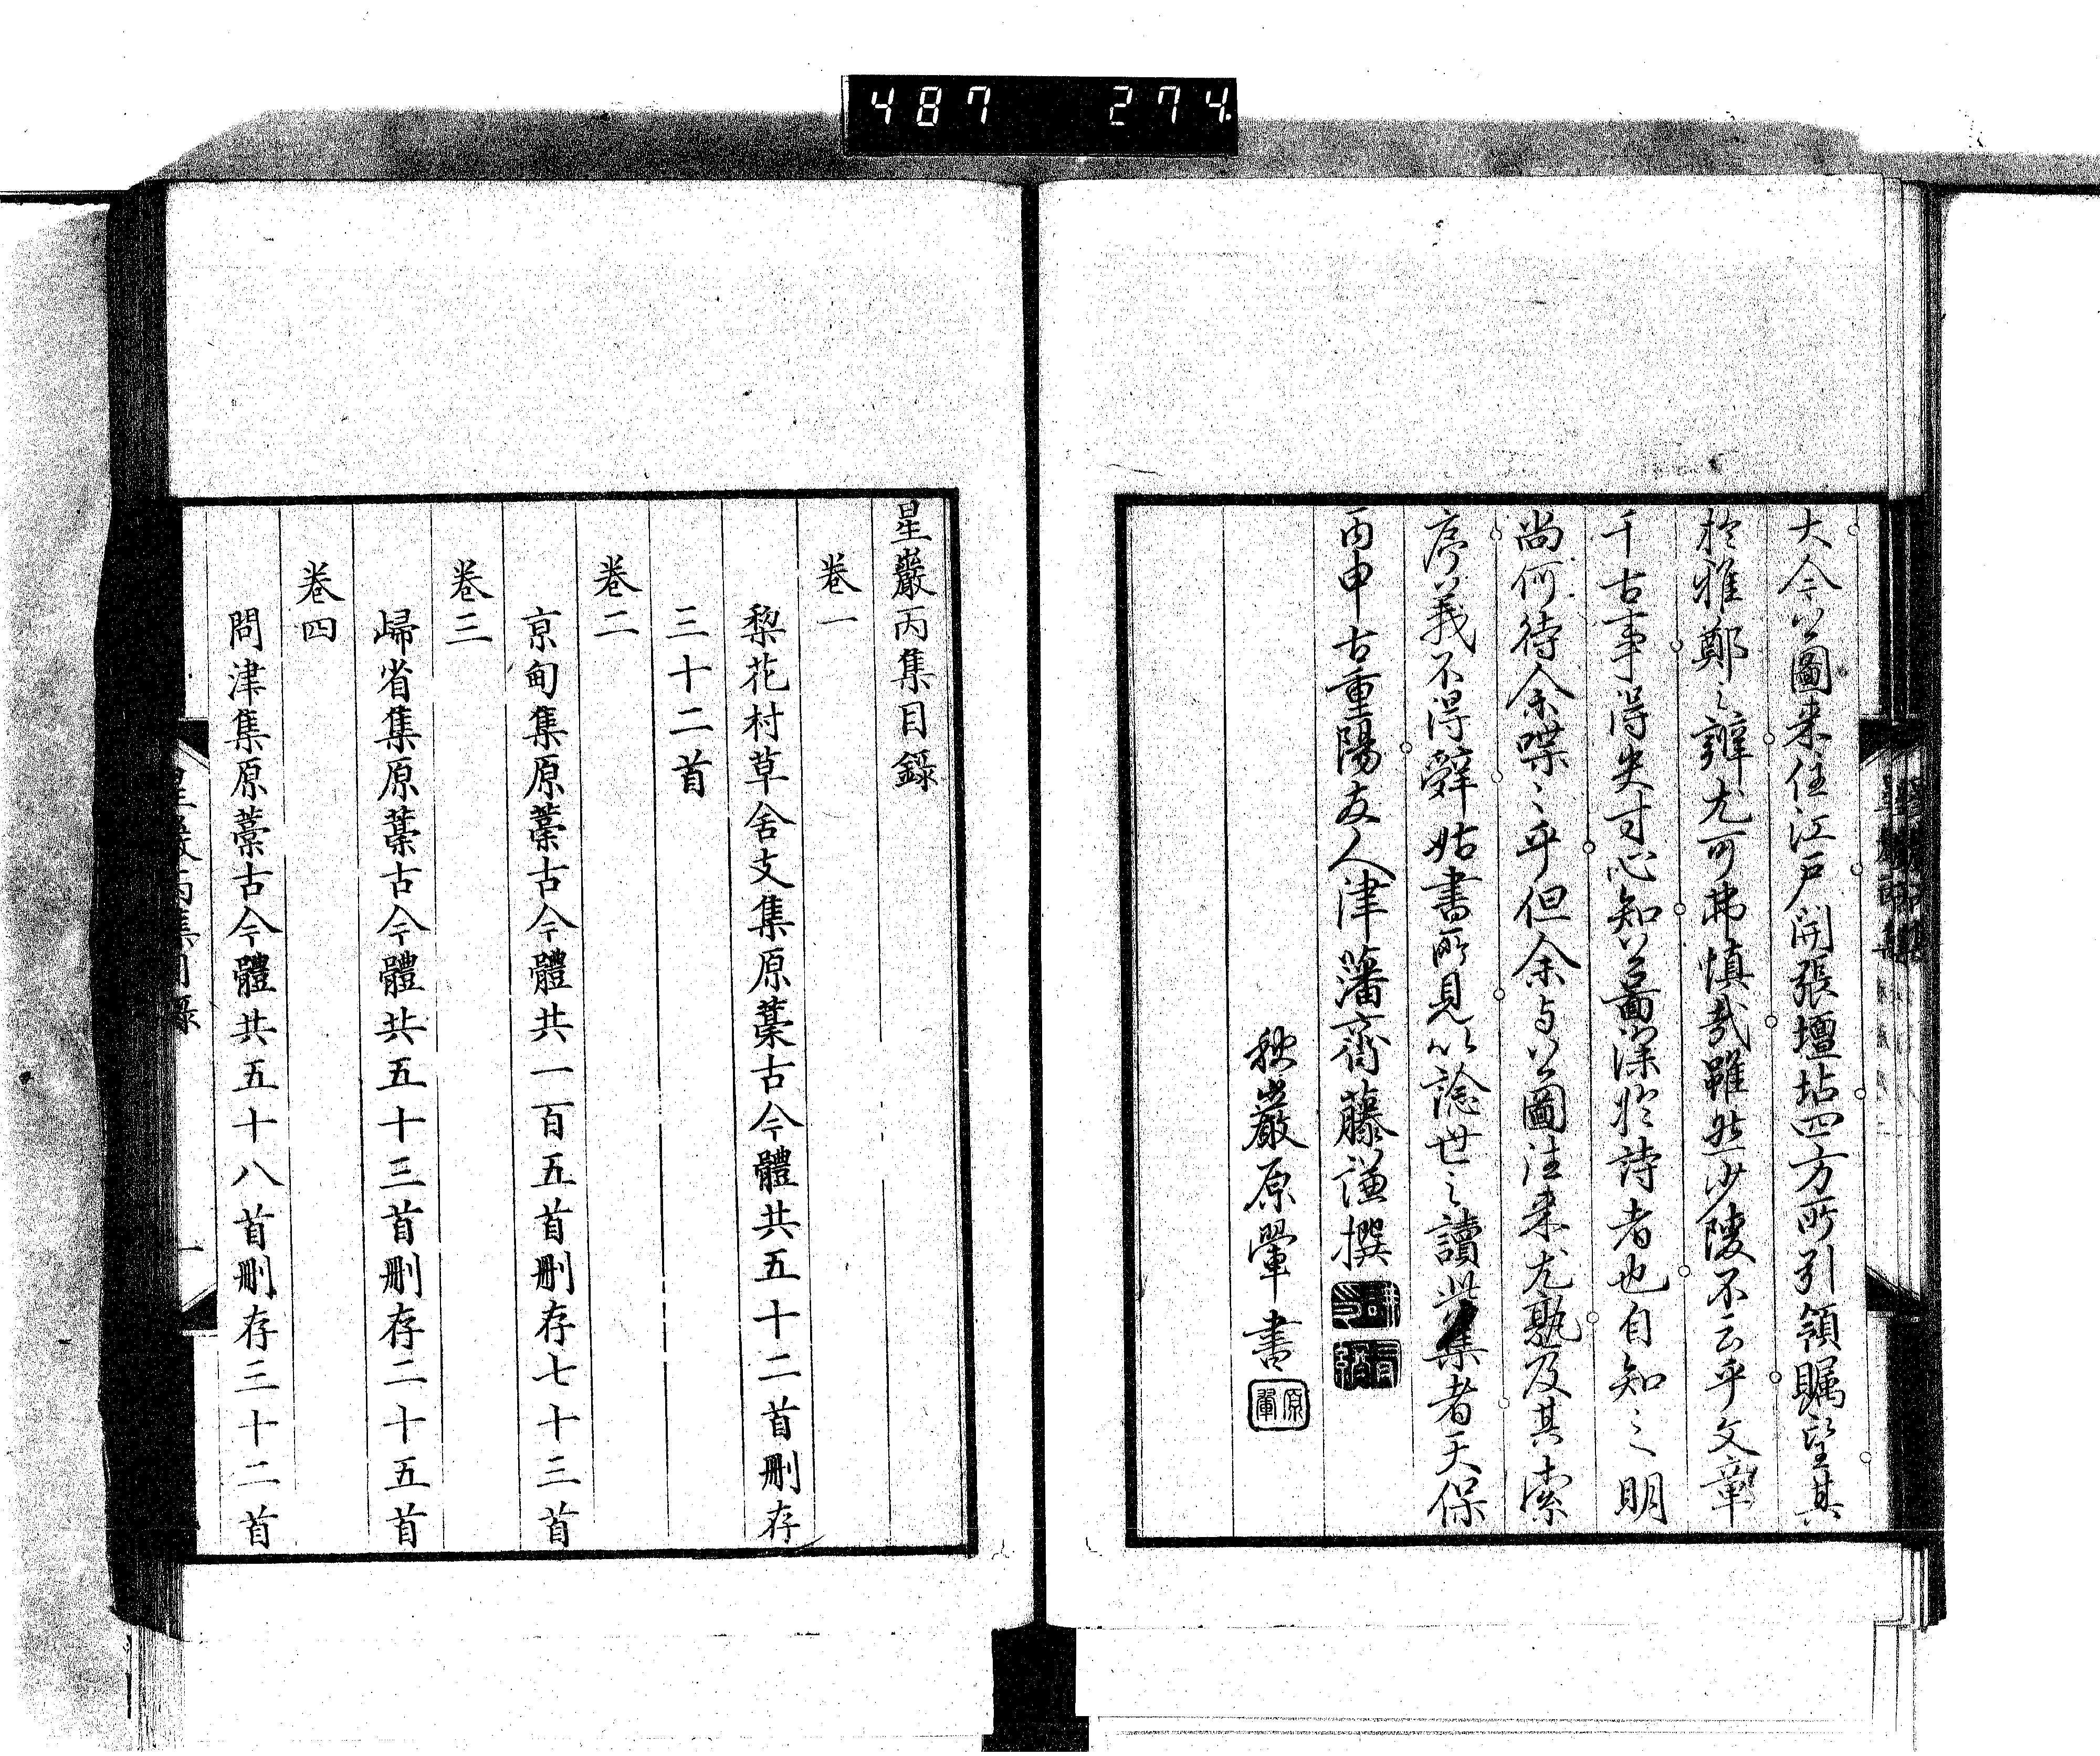 487 274
大今公圖来住江戸開張壇坫四方所引領矚望其
於雅鄭之辯尤可弗慎哉雖然少陵不云乎文章
千古事得失寸心知公圖深於詩者也自知之明
尚何待余喋〻乎但余与公圖往来尤熟及其索
序義不得辤姑書所見以諗世之讀此集者天保
丙申古重陽友人津藩齋藤謙撰
秋巖原翬書
原翬
星巖丙集目録
卷一
梨花村草舍支集原藁古今體共五十二首刪存
三十二首
卷二
京甸集原藁古今體共一百五首刪存七十三首
卷三
歸省集原藁古今體共五十三首刪存二十五首
卷四
問津集原藁古今體共五十八首刪存三十二首
星巖丙集目録 一